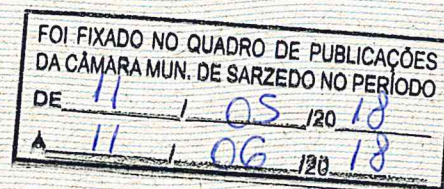 FOI FIXADO NO QUADRO DE PUBLICAÇÕES
DA CÂMARA MUN. DE SARZEDO NO PERÍODO
DE 11 / 05 /20 18
A 11 / 06 /20 18